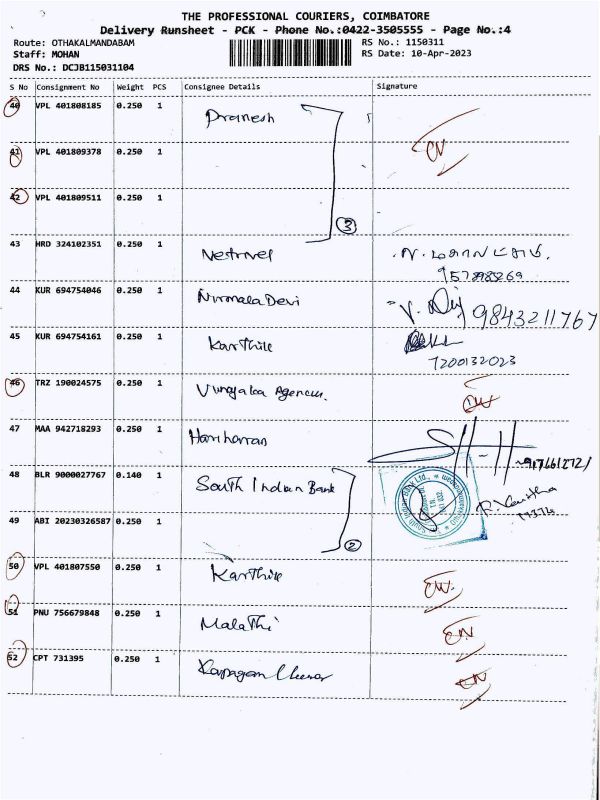 THE PROFESSIONAL COURIERS, COIMBATORE
Delivery Runsheet - PCK - Phone No.:0422-3505555 - Page No.:4
Route: OTHAKALMANDABAM RS No.: 1150311
Staff: MOHAN RS Date: 10-Apr-2023
DRS No.: DCJB115031104
S No Consignment No Weight PCS Consignee Details Signature
40 VPL 401808185 0.250 1 Pranesh
41 VPL 401809378 0.250 1
42 VPL 401809511 0.250 1
3
43 HRD 324102351 0.250 1 Vetrivel
44 KUR 694754046 0.250 1 Nirmala Devi
9843211767
45 KUR 694754161 0.250 1 Karthik
7200132023
46 TRZ 190024575 0.250 1 Vinayaka Agencies.
47 MAA 942718293 0.250 1 Hariharran
48 BLR 9000027767 0.140 1 South Indian Bank
49 ABI 20230326587 0.250 1
2
50 VPL 401807550 0.250 1 Karthik
51 PNU 756679848 0.250 1 Malathi
52 CPT 731395 0.250 1